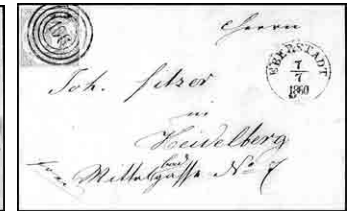 106
Herrn
EBERSTADT
7
7
1860
Joh. Filser
in
Heidelberg
Mittelgasse No 7